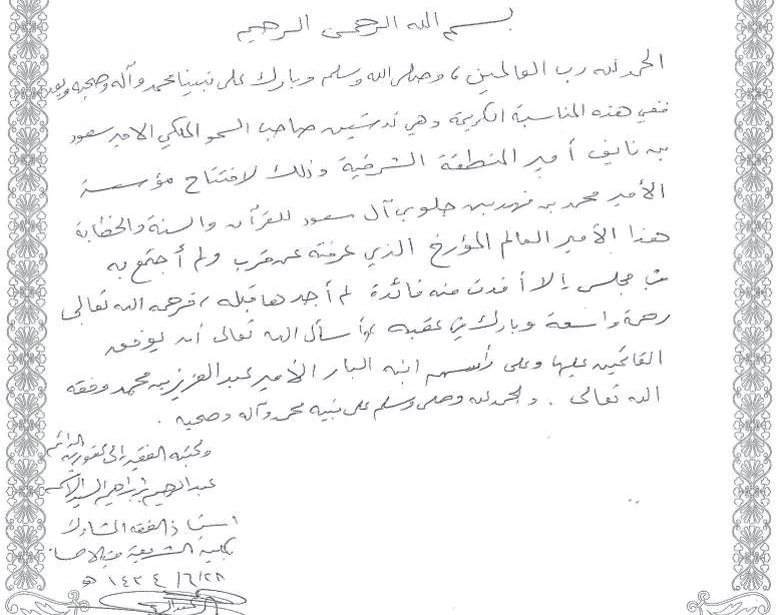 بسم الله الرحمن الرحيم
الحمد لله رب العالمين، وصلى الله وسلم وبارك على نبينا محمد وآله وصحبه وبعد
ففي هذه المناسبة الكريمة وهي تدشين صاحب السمو الملكي الامير سعود
بن نايف أمير المنطقة الشرقية وذلك لافتتاح مؤسسة
الأمير محمد بن فهد بن جلوي آل سعود للقرآن والسنة والخطابة
هذا الأمير العالم المؤرخ الذي عرفته عن قرب ولم أجتمع به
في مجلس إلا أفدت منه فائدة لم أجدها قبله، فرحمه الله تعالى
رحمة واسعة وبارك في عقبه وأسأل الله تعالى أن يوفق
القائمين عليها وعلى رأسهم ابنه البار الأمير عبد العزيز بن محمد وفقه
الله تعالى . والحمد لله وصلى وسلم على نبيه محمد وآله وصحبه .
وكتبه الفقير إلى عفو ربه
عبد الرحيم بن إبراهيم السيد الهاشم
استاذ الفقه المشارك
بكلية الشريعة في الاحساء
١٤٣٤/٦/٢٨ هـ